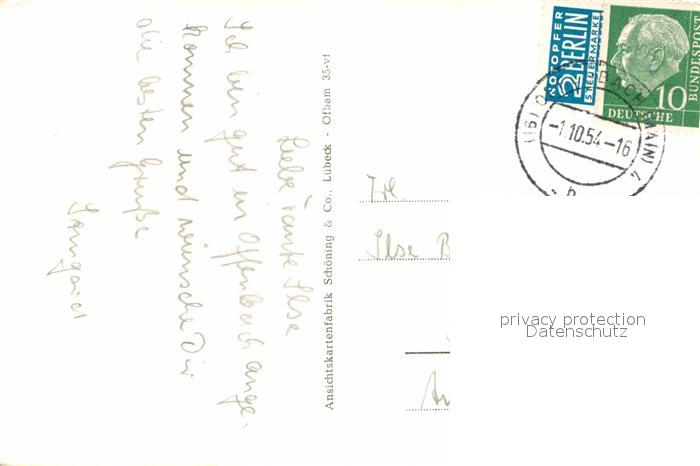 Liebe Tante Ilse
Ich bin gut in Offenbach ange-
kommen und wünsche Dir
die besten Grüße
Irmgard
Ansichtskartenfabrik Schöning & Co., Lübeck - Ofbam 35-vf
NOTOPFER
2 BERLIN
STEUERMARKE
10
DEUTSCHE
BUNDESPOST
(16) OFFENBACH (MAIN) 4
-1.10.54-16
b
Frl.
Ilse B
privacy protection
Datenschutz